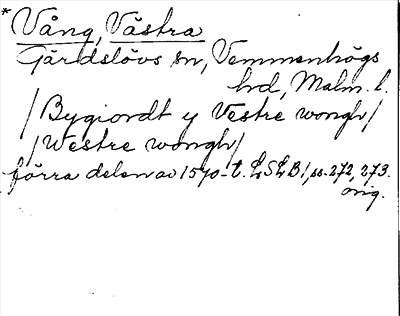 * Vång, Västra
Gärdslövs sn, Vemmenhögs
hd, Malm. l.
/Bygiordt y Vestre wongh/
/Westre wongh/
förra delen av 1570-t. LSLB 1, ss. 272, 273.
orig.